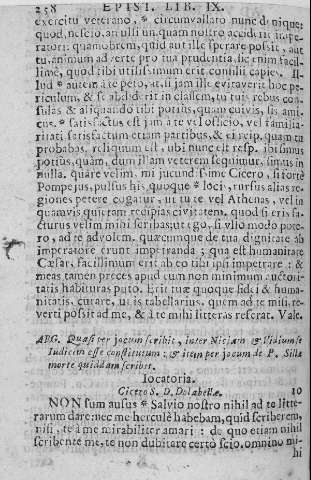 258 EPIST. LIB. IX.
exercitu veterano, * circumvallato nunc denique:
quod, nescio, an ulli unquam nostro acciderit impe-
ratori: quamobrem, quid aut ille sperare possit, aut
tu, animum adverte pro tua prudentia, sic enim facil-
lime, quod tibi utilissimum erit consilii capies. Il-
lud * autem à te peto, ut, si jam ille evitaverit hoc pe-
riculum, & se abdiderit in classem, tu tuis rebus con-
sulas & aliquando tibi potius, quam cuivis, sis ami-
cus. * satisfactum est jam à te vel officio, vel familia-
ritati satisfactum etiam partibus, & ei reip. quam tu
probabas, reliquum est, ubi nunc est resp. ibi simus
potius, quam, dum illam veterem sequimur, simus in
nulla. quare velim, mi jucundissime Cicero, si forte
Pompejus, pulsus his quoque * locis, rursus alias re-
giones petere cogatur, ut tu te vel Athenas, vel in
quamvis quietam recipias civitatem. quod si eris fa-
cturus velim mihi scribas; ut ego, si ullo modo pote-
ro, ad te advolem. quæcumque de tua dignitate ab
imperatore erunt impetranda; qua est humanitate
Cæsar, facillimum erit ab eo tibi ipsi impetrare: &
meas tamen preces apud eum non minimum auctori-
tatis habituras puto. Erit tuæ quoque fidei & huma-
nitatis, curare, ut is tabellarius, quem ad te misi, re-
verti possit ad me, & à te mihi litteras referat. Vale.
ARG. Quasi per jocum scribit, inter Niciam & Vidium se
Iudicem esse constitutum: & item per jocum de P. Silla
morte quiddam scribit.
Iocatoria.
Cicero S. D. Dolabellæ. 10
NON sum ausus * Salvio nostro nihil ad te litte-
rarum dare: nec me herculè habebam, quid scriberem,
nisi, te à me mirabiliter amari: de quo etiam nihil
scribente me, te non dubitare certò scio. omnino mi-
hi